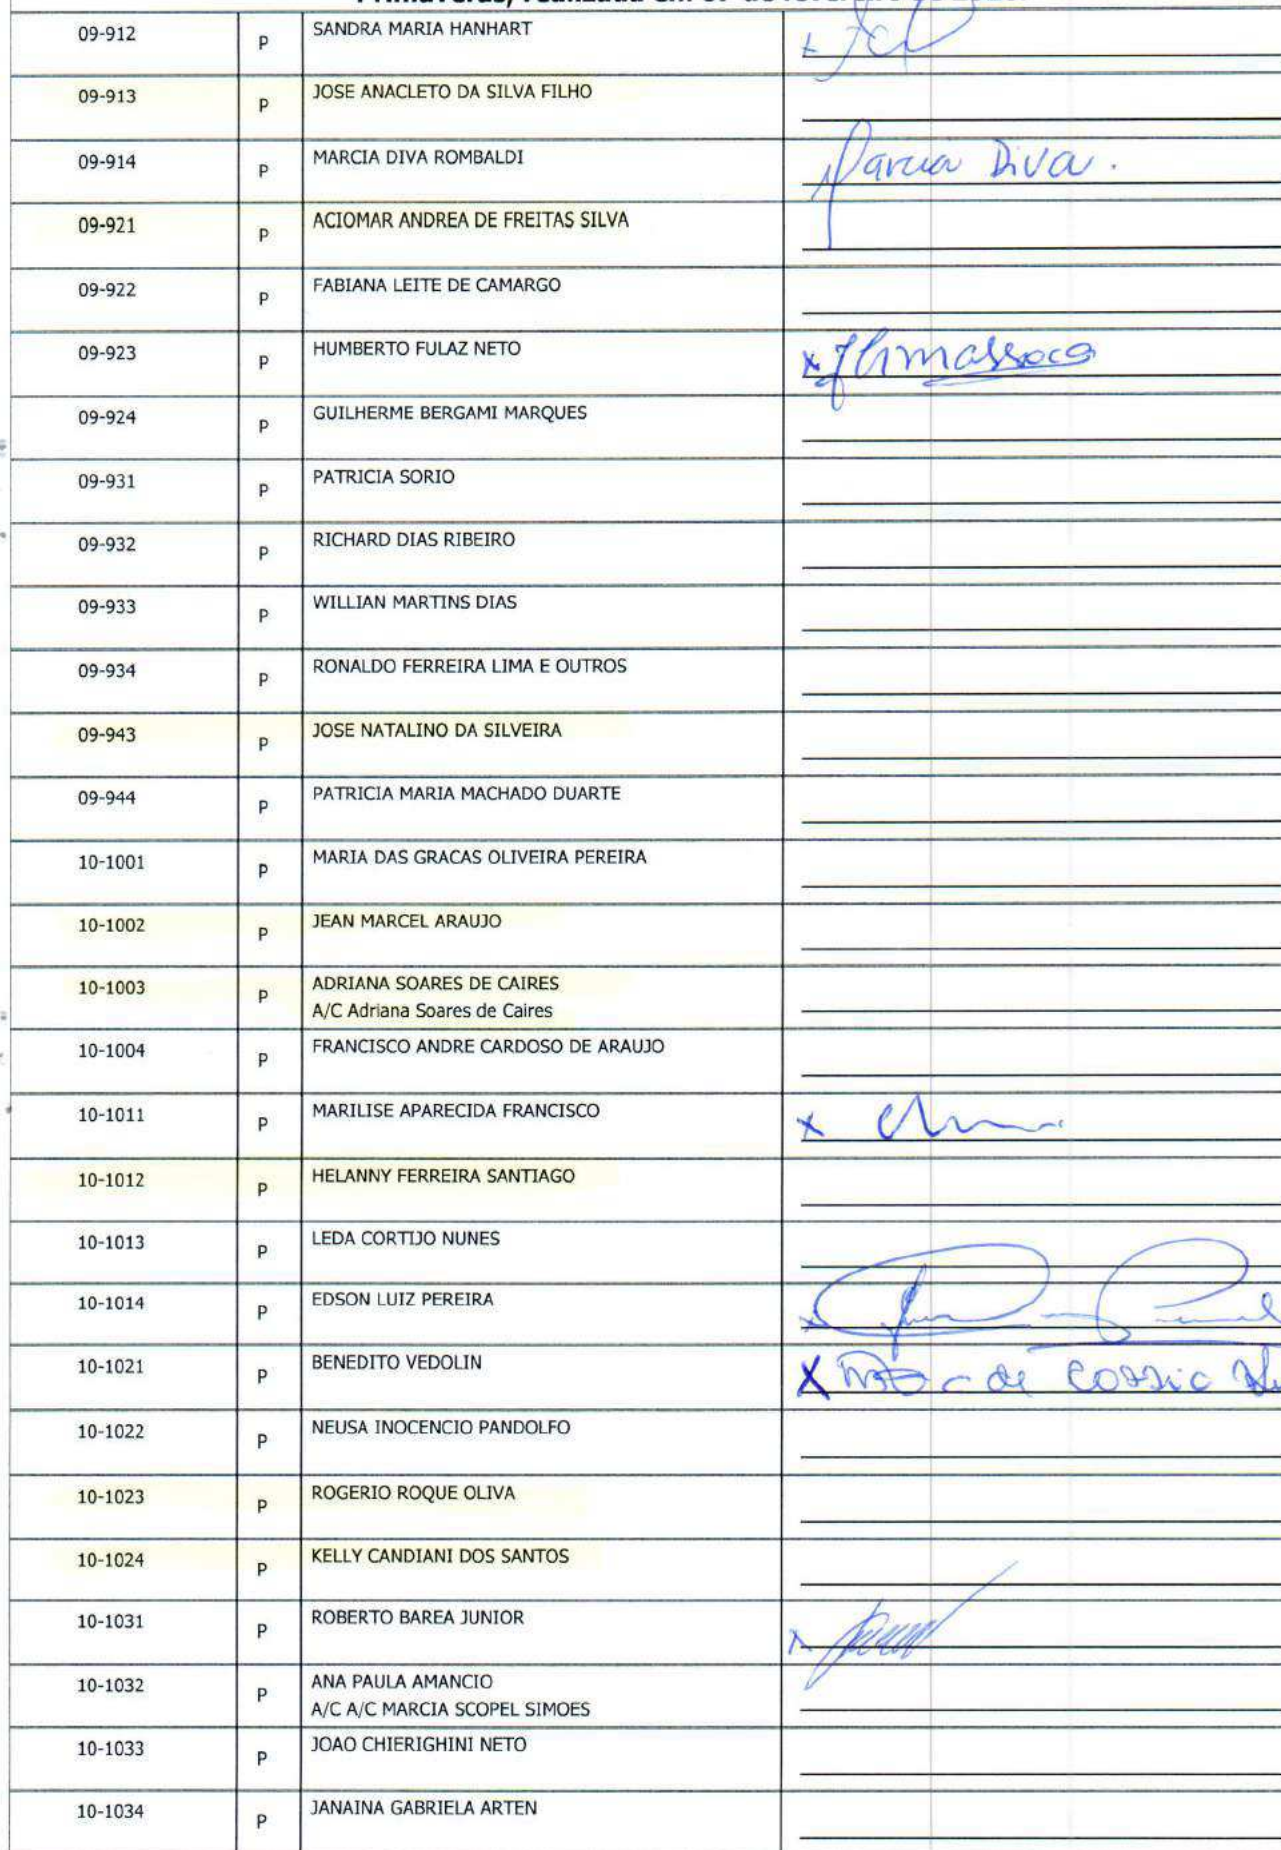 09-912 P SANDRA MARIA HANHART
09-913 P JOSE ANACLETO DA SILVA FILHO
09-914 P MARCIA DIVA ROMBALDI Marcia Diva.
09-921 P ACIOMAR ANDREA DE FREITAS SILVA
09-922 P FABIANA LEITE DE CAMARGO
09-923 P HUMBERTO FULAZ NETO x
09-924 P GUILHERME BERGAMI MARQUES
09-931 P PATRICIA SORIO
09-932 P RICHARD DIAS RIBEIRO
09-933 P WILLIAN MARTINS DIAS
09-934 P RONALDO FERREIRA LIMA E OUTROS
09-943 P JOSE NATALINO DA SILVEIRA
09-944 P PATRICIA MARIA MACHADO DUARTE
10-1001 P MARIA DAS GRACAS OLIVEIRA PEREIRA
10-1002 P JEAN MARCEL ARAUJO
10-1003 P ADRIANA SOARES DE CAIRES
A/C Adriana Soares de Caires
10-1004 P FRANCISCO ANDRE CARDOSO DE ARAUJO
10-1011 P MARILISE APARECIDA FRANCISCO x
10-1012 P HELANNY FERREIRA SANTIAGO
10-1013 P LEDA CORTIJO NUNES
10-1014 P EDSON LUIZ PEREIRA x
10-1021 P BENEDITO VEDOLIN X de
10-1022 P NEUSA INOCENCIO PANDOLFO
10-1023 P ROGERIO ROQUE OLIVA
10-1024 P KELLY CANDIANI DOS SANTOS
10-1031 P ROBERTO BAREA JUNIOR
10-1032 P ANA PAULA AMANCIO
A/C A/C MARCIA SCOPEL SIMOES
10-1033 P JOAO CHIERIGHINI NETO
10-1034 P JANAINA GABRIELA ARTEN